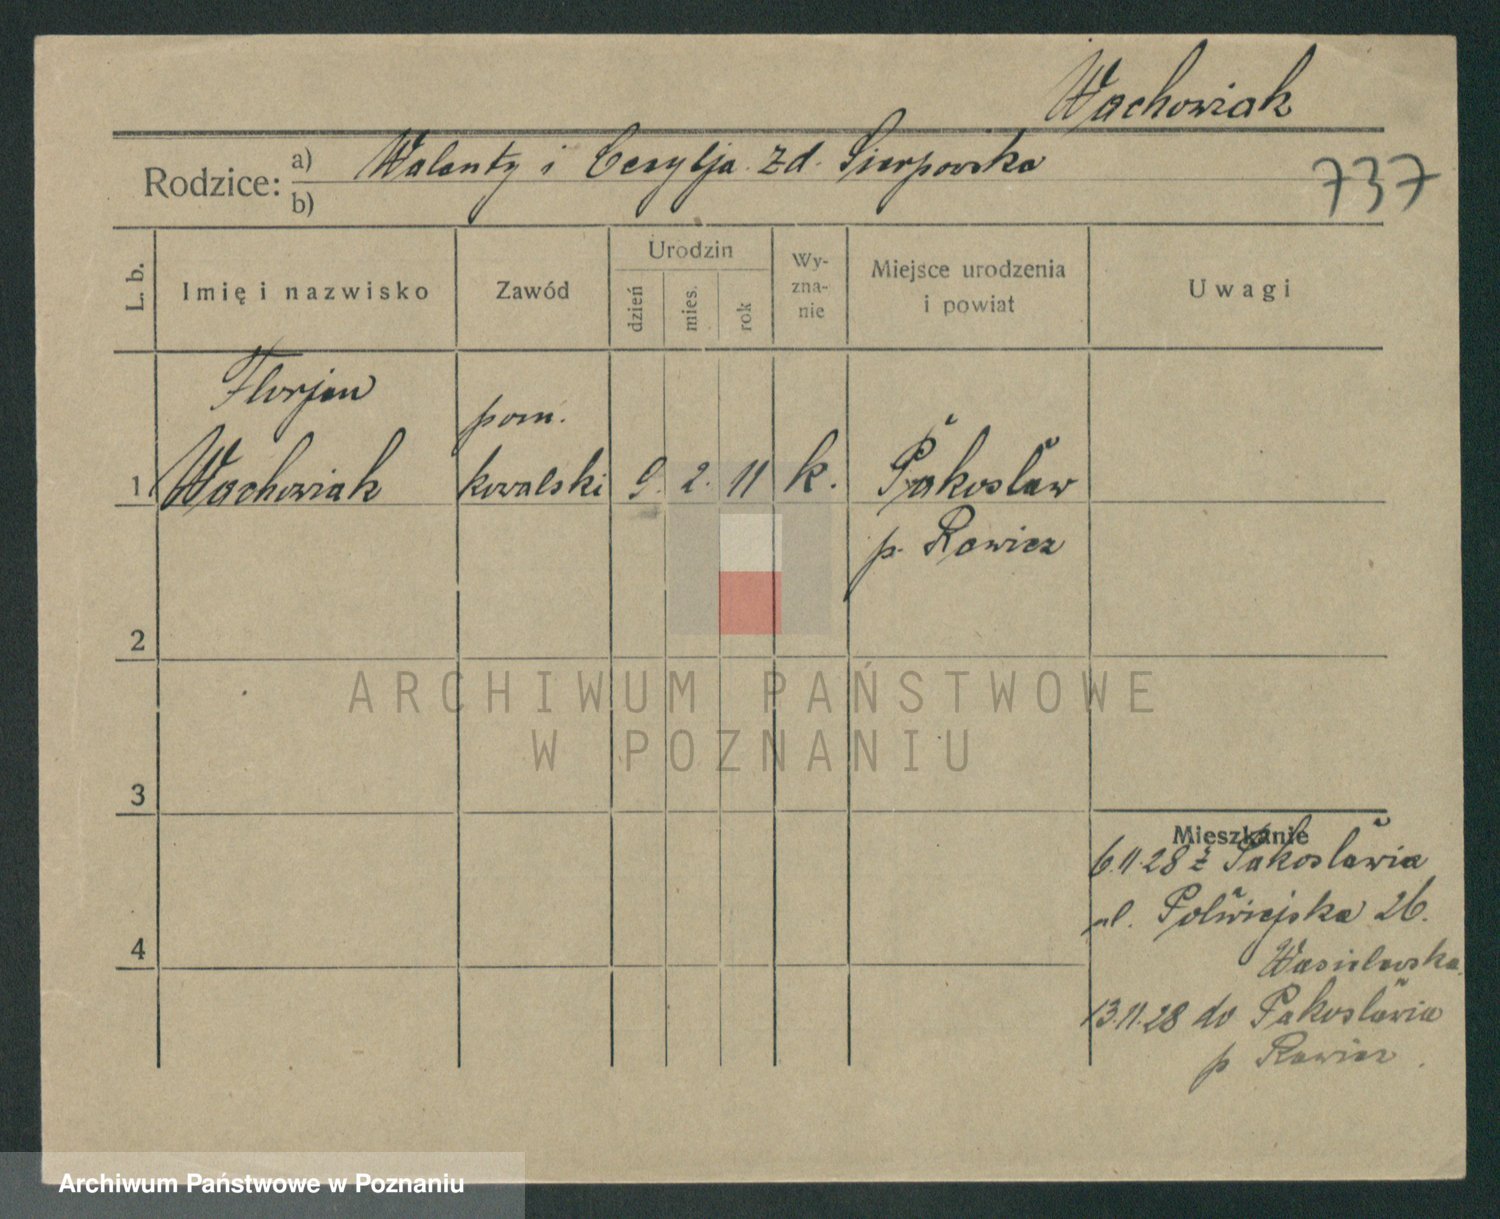 Wachowiak
Rodzice: a) Walenty i Cecylja zd. Sierpowska
b)
737
L. b.
Imię i nazwisko
Zawód
Urodzin
dzień
mies.
rok
Wy-
zna-
nie
Miejsce urodzenia
i powiat
Uwagi
Florjan
pom.
1 Wachowiak kowalski 9. 2. 11 k. Pakosław
p. Rawicz
2
ARCHIWUM PAŃSTWOWE
W POZNANIU
3
Mieszkanie
6.11.28 z Pakosławia
ul. Półwiejska 26.
Wasielewska
4
13.11.28 do Pakosławia
p Rawicz
Archiwum Państwowe w Poznaniu